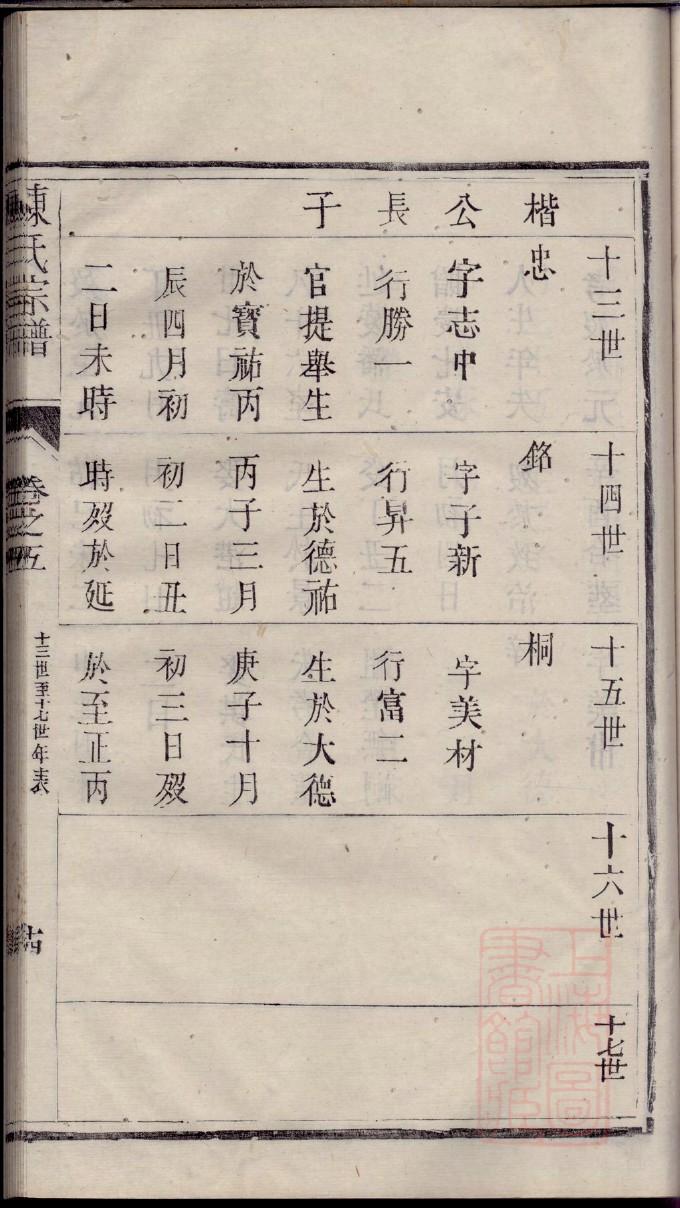 楷公長子
十三世
忠
字志中
行勝一
官提舉生
於寶祐丙
辰四月初
二日未時
十四世
銘
字子新
行昇五
生於德祐
丙子三月
初二日丑
時殁於延
十五世
桐
字美材
行富二
生於大德
庚子十月
初三日殁
於至正丙
十六世
十七世
陳氏宗譜
卷之五
十三世至十七世年表
上海圖書館藏